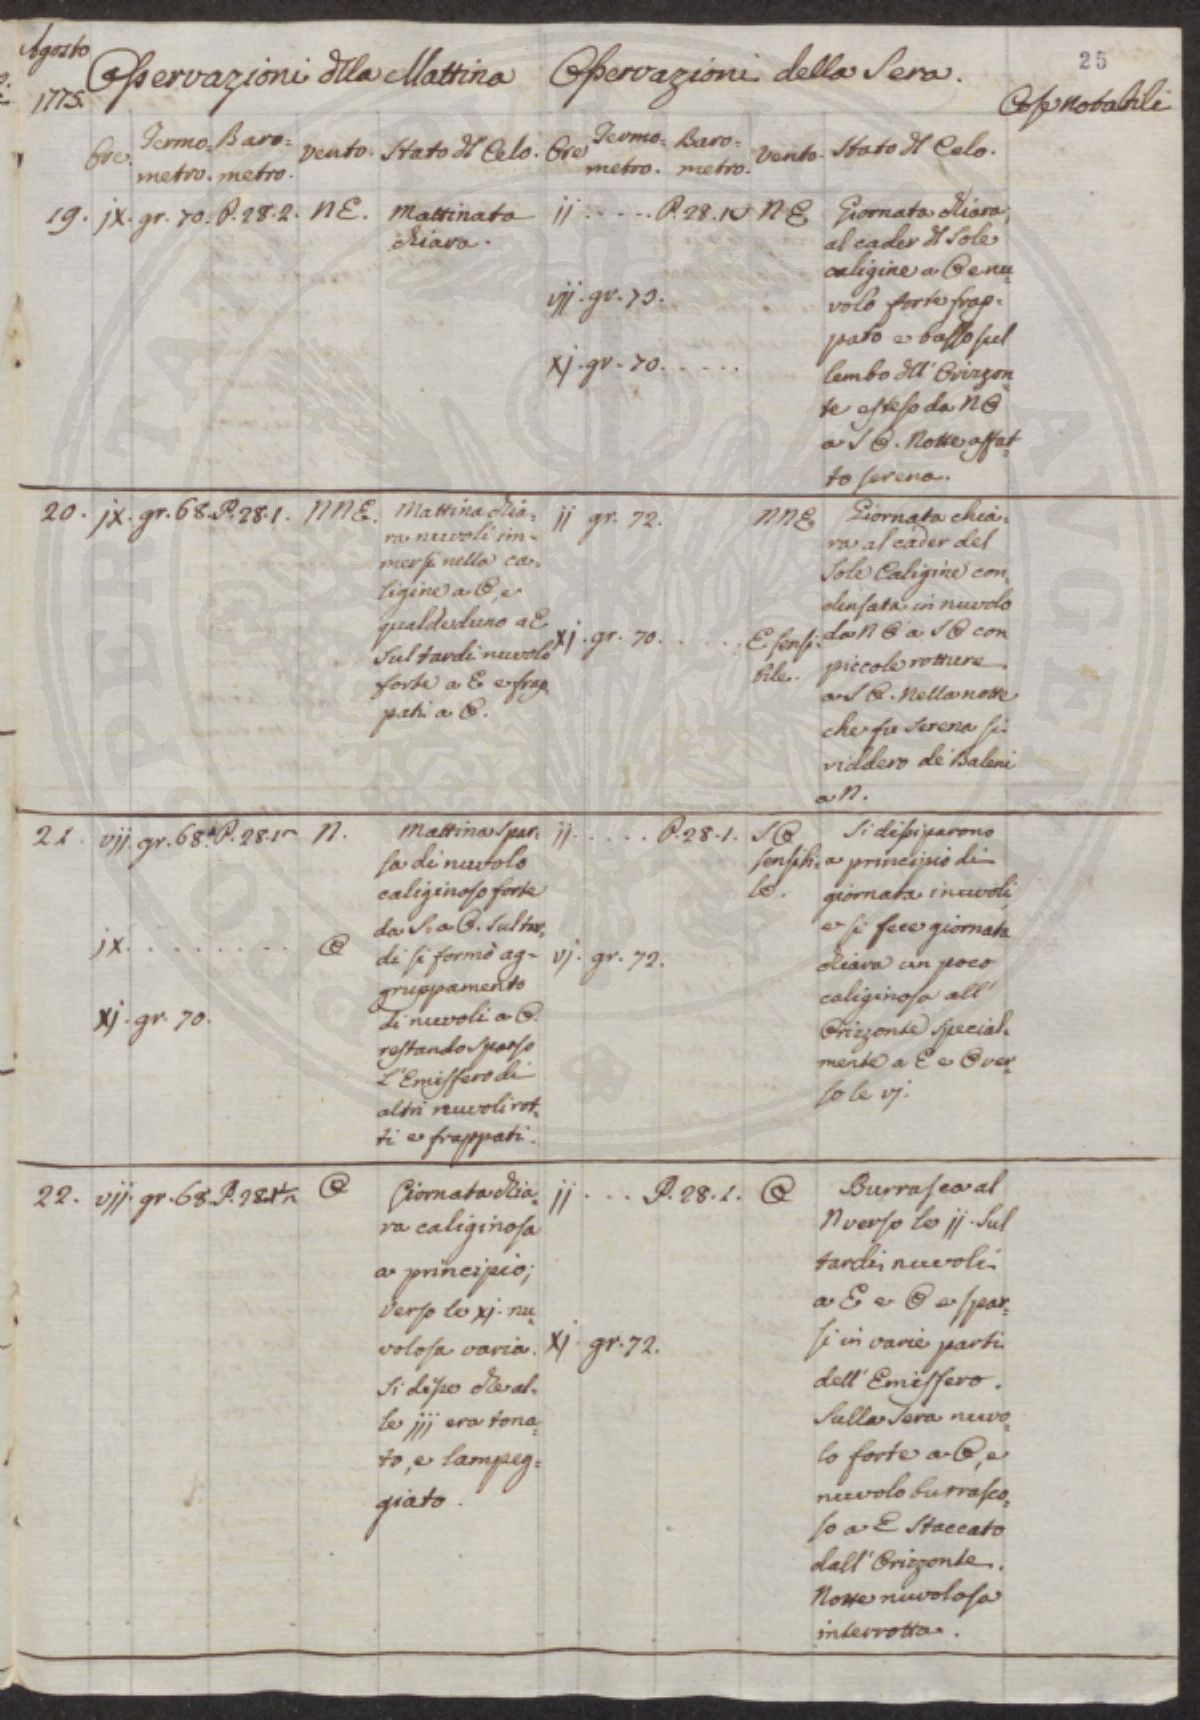 Agosto
1775.
25
Osservazioni dlla Mattina
Osservazioni della Sera.
Cose Notabili
Ore. Termo= Baro= Vento. Stato dl Celo.
metro. metro.
Ore Termo= Baro= Vento. Stato dl Celo.
metro. metro.
19. jx. gr. 70. P. 28. 2. NE.
Mattinata
chiara.
ij . . . . . P. 28. 1 NE
vij. gr. 73.
xj. gr. 70. . . . . .
Giornata chiara;
al cader dl Sole
caligine a O e nu=
volo forte frap=
pato e basso sul
lembo dll' Orizzon=
te esteso da NO
a SO. Notte affat=
to serena.
20. jx. gr. 68. P. 28. 1. NNE.
Mattina chia=
ra nuvoli im=
mersi nella ca=
ligine a O, e
qualcheduno a E
Sul tardi nuvolo
forte a E e frap
pati a O.
ij gr. 72. NNE
xj. gr. 70. . . . . . E sensi=
bile.
Giornata chia=
ra al cader del
Sole Caligine con=
densata in nuvolo
da NO a SO con
piccole rotture
a SO. Nella notte
che fu serena si
viddero de' Baleni
a N.
21. vij. gr. 68. P. 28. 1 N.
jx. . . . . . . . . . O
xj. gr. 70.
Mattina spar=
sa di nuvolo
caliginoso forte
da S. a O. Sul tar=
di si formò ag=
gruppamento
di nuvoli a O.
restando sparso
l'Emisfero di
altri nuvoli rot=
ti e frappati.
ij. . . . . . P. 28. 1. SO
sensibi=
le.
vj. gr. 72.
Si dissiparono
a principio di
giornata i nuvoli
e si fece giornata
chiara un poco
caliginosa all'
Orizzonte special=
mente a E e O ver=
so le vj.
22. vij. gr. 68. P. 28. O
Giornata chia=
ra caliginosa
a principio;
verso le xj. nu=
volosa varia.
Si disse che al=
le iij era tona=
to, e lampeg=
giato.
ij . . . P. 28. 1. O
xj. gr. 72.
Burrasca al
N verso le ij. Sul
tardi, nuvoli
a E e O e spar=
si in varie parti
dell' Emisfero.
Sulla sera nuvo=
lo forte a O, e
nuvolo burrasco=
so a E staccato
dall' Orizzonte.
Notte nuvolosa
interrotta.